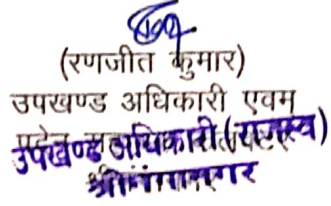 (रणजीत कुमार)
उपखण्ड अधिकारी एवम
उपखण्ड अधिकारी (राजस्व)
श्रीगंगानगर